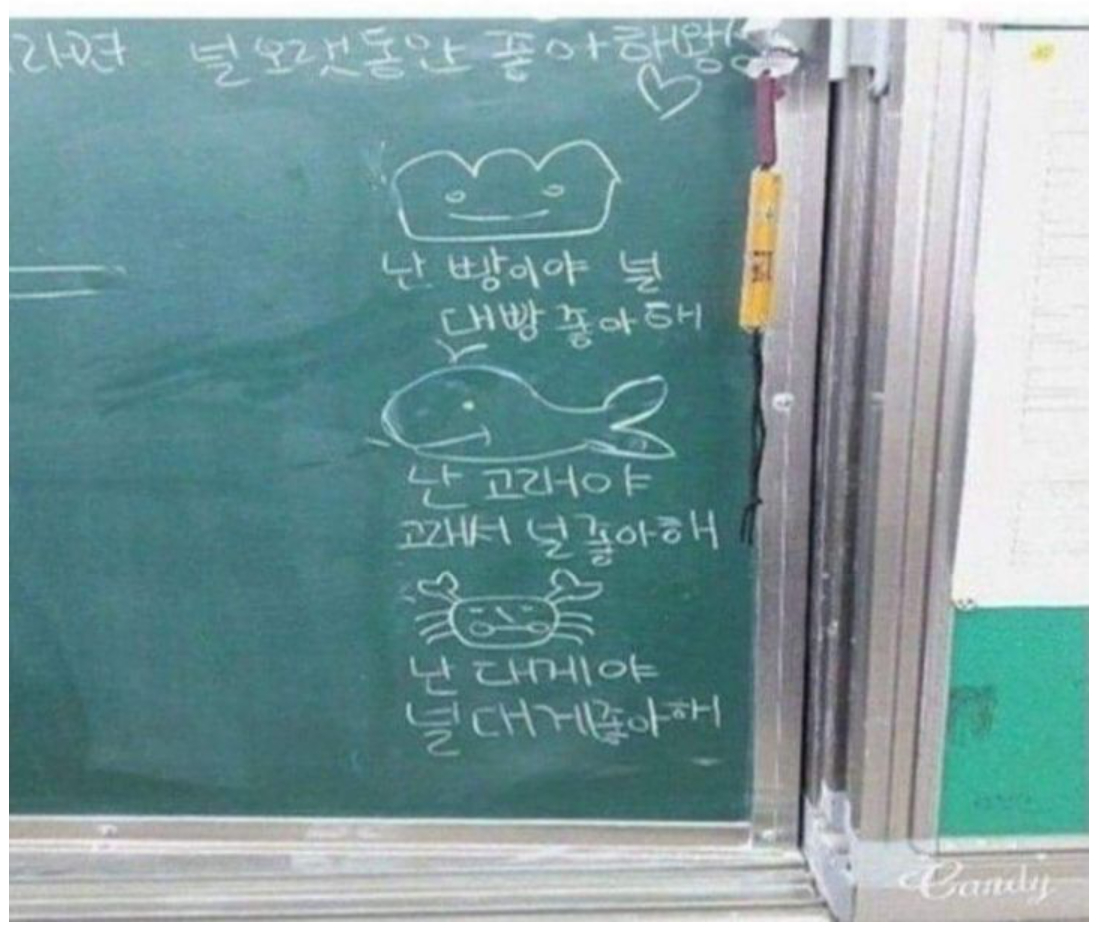 널 오랫동안 좋아해왔어
난 빵이야 널
대빵 좋아해
난 고래야
고래서 널 좋아해
난 대게야
널 대게 좋아해
Candy